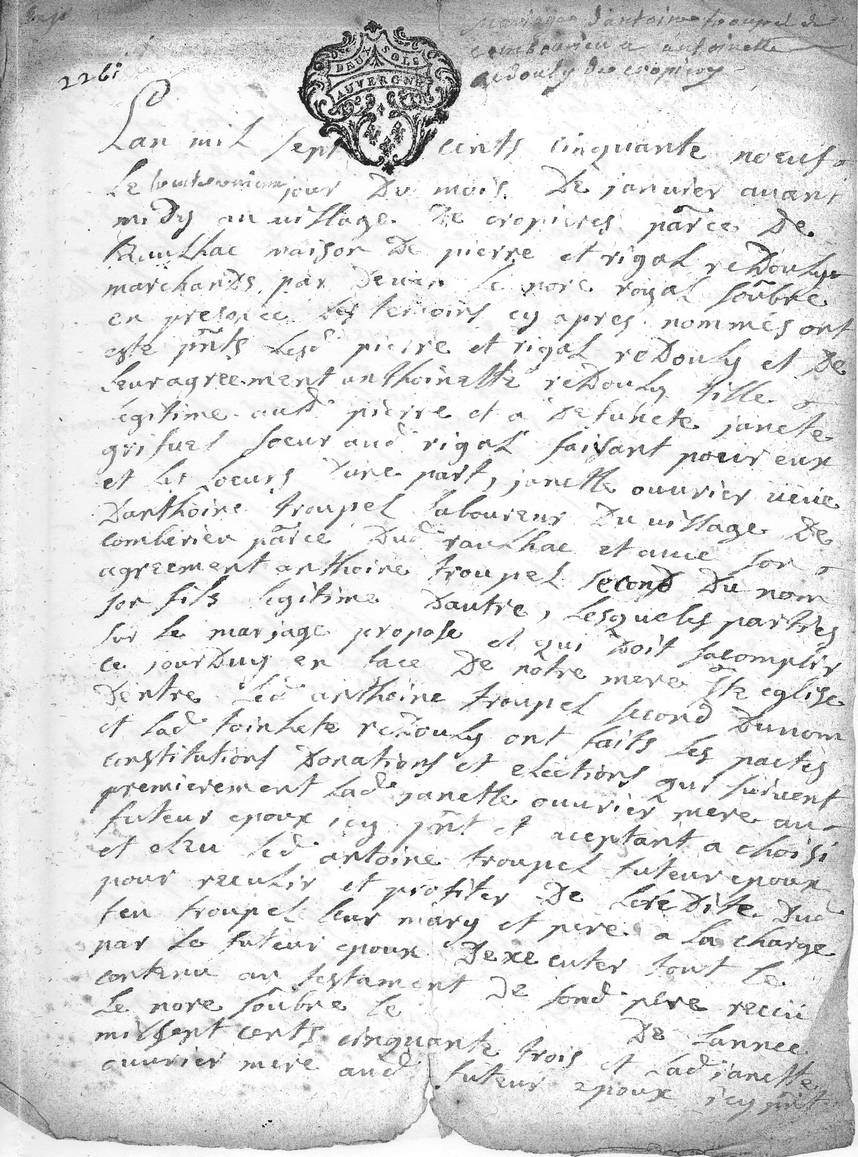 mariage d'antoine troupel de
comberieu a antoinette
redouly de cropieres
2261
DEUX SOLS
AUVERGNE
Lan mil sept cents cinquante noeuf
Le jour Du mois De janvier avant
midy au village De cropieres parce De
Raulhac maison De pierre et rigal reDoulys
marchands par Devan Le nore royal soubre
en presence Les temoins cy apres nommés ont
este pnts Lesd pierre et rigal reDouly et De
leur agreement anthoinette reDouly fille
Legitime aud pierre et a Defuncte janete
grifuel soeur aud rigal faisant pour eux
et les soeurs Dune part, janette ouvrier veuve
Danthoine troupel laboureur Du village De
comberieu parce Dud raulhac et avec son
agreement anthoine troupel second Du nom
son fils legitime Dautre, Lesquels parties
sur le mariage propose et qui Doit sacomplir
ce jourDuy en face De nôtre mere ste eglise
Dentre Led anthoine troupel second Dunom
et lad toinete reDouly ont faits les pactes
constitutions Donations et elections qui suivent
premierement Lad janette ouvrier mere au
futeur epoux icy pnt et aceptant a choisi
et eleu Led antoine troupel futeur epoux
pour reculir et profiter De LereDite Dud
feu troupel leur mary et pere a la charge
par le futeur epoux Dexecuter tout le
contenu au testament De sond pere receu
Le nore soubre le De lannee
mil sept cents cinquante trois et Lad janette
ouvrier mere aud futeur epoux icy pnt